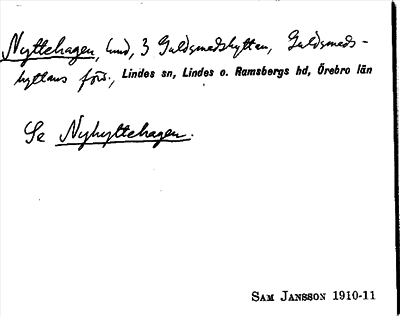 Nyttehagen, lund, 3 Guldsmedshyttan, Guldsmeds-
hyttans förs., Lindes sn, Lindes o. Ramsbergs hd, Örebro län
Se Nyhyttehagen.
SAM JANSSON 1910-11